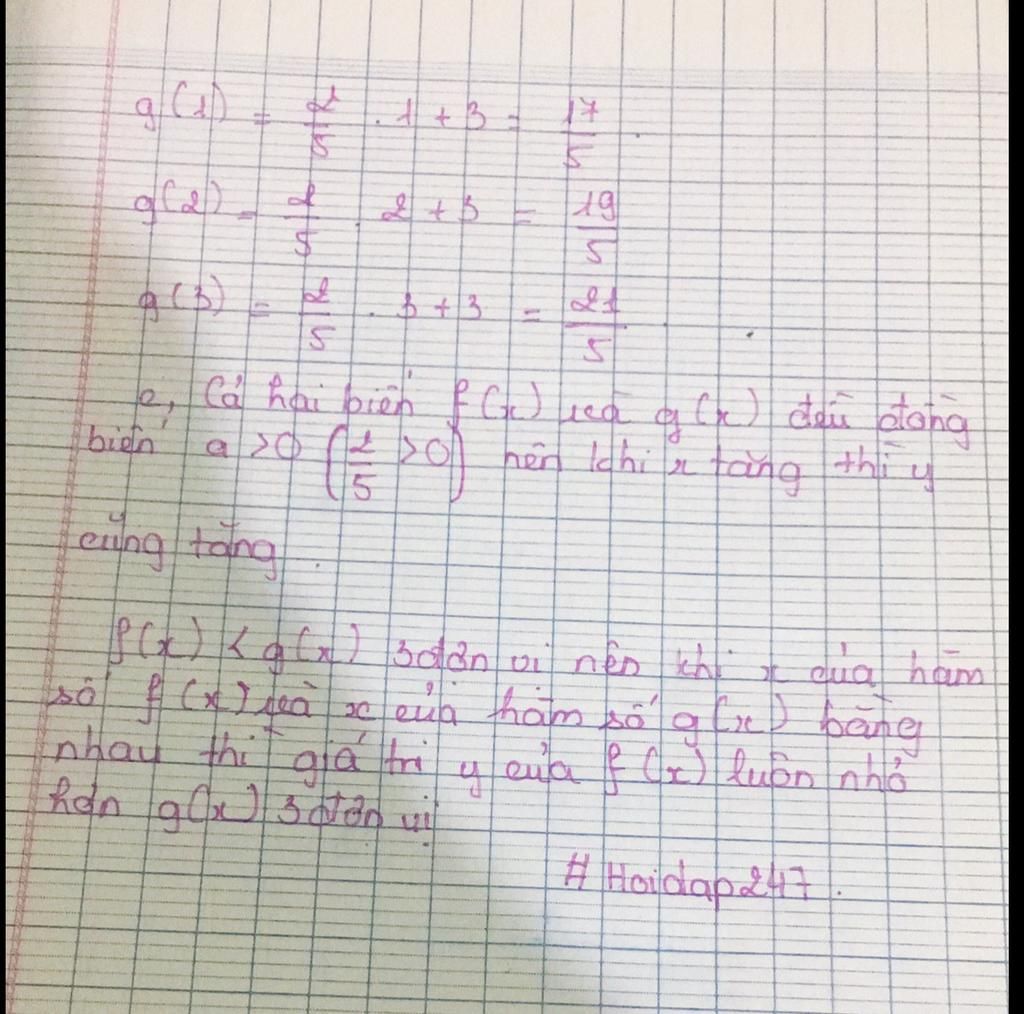 g(1) = 2/5 . 1 + 3 = 17/5
g(2) = 2/5 . 2 + 3 = 19/5
g(3) = 2/5 . 3 + 3 = 21/5
c, Cả hai biến f(x) và g(x) đều đồng
biến a > 0 (2/5 > 0) nên khi x tăng thì y
cũng tăng.
f(x) < g(x) 3 đơn vị nên khi x của hàm
số f(x) và x của hàm số g(x) bằng
nhau thì giá trị y của f(x) luôn nhỏ
hơn g(x) 3 đơn vị
# Hoidap247.